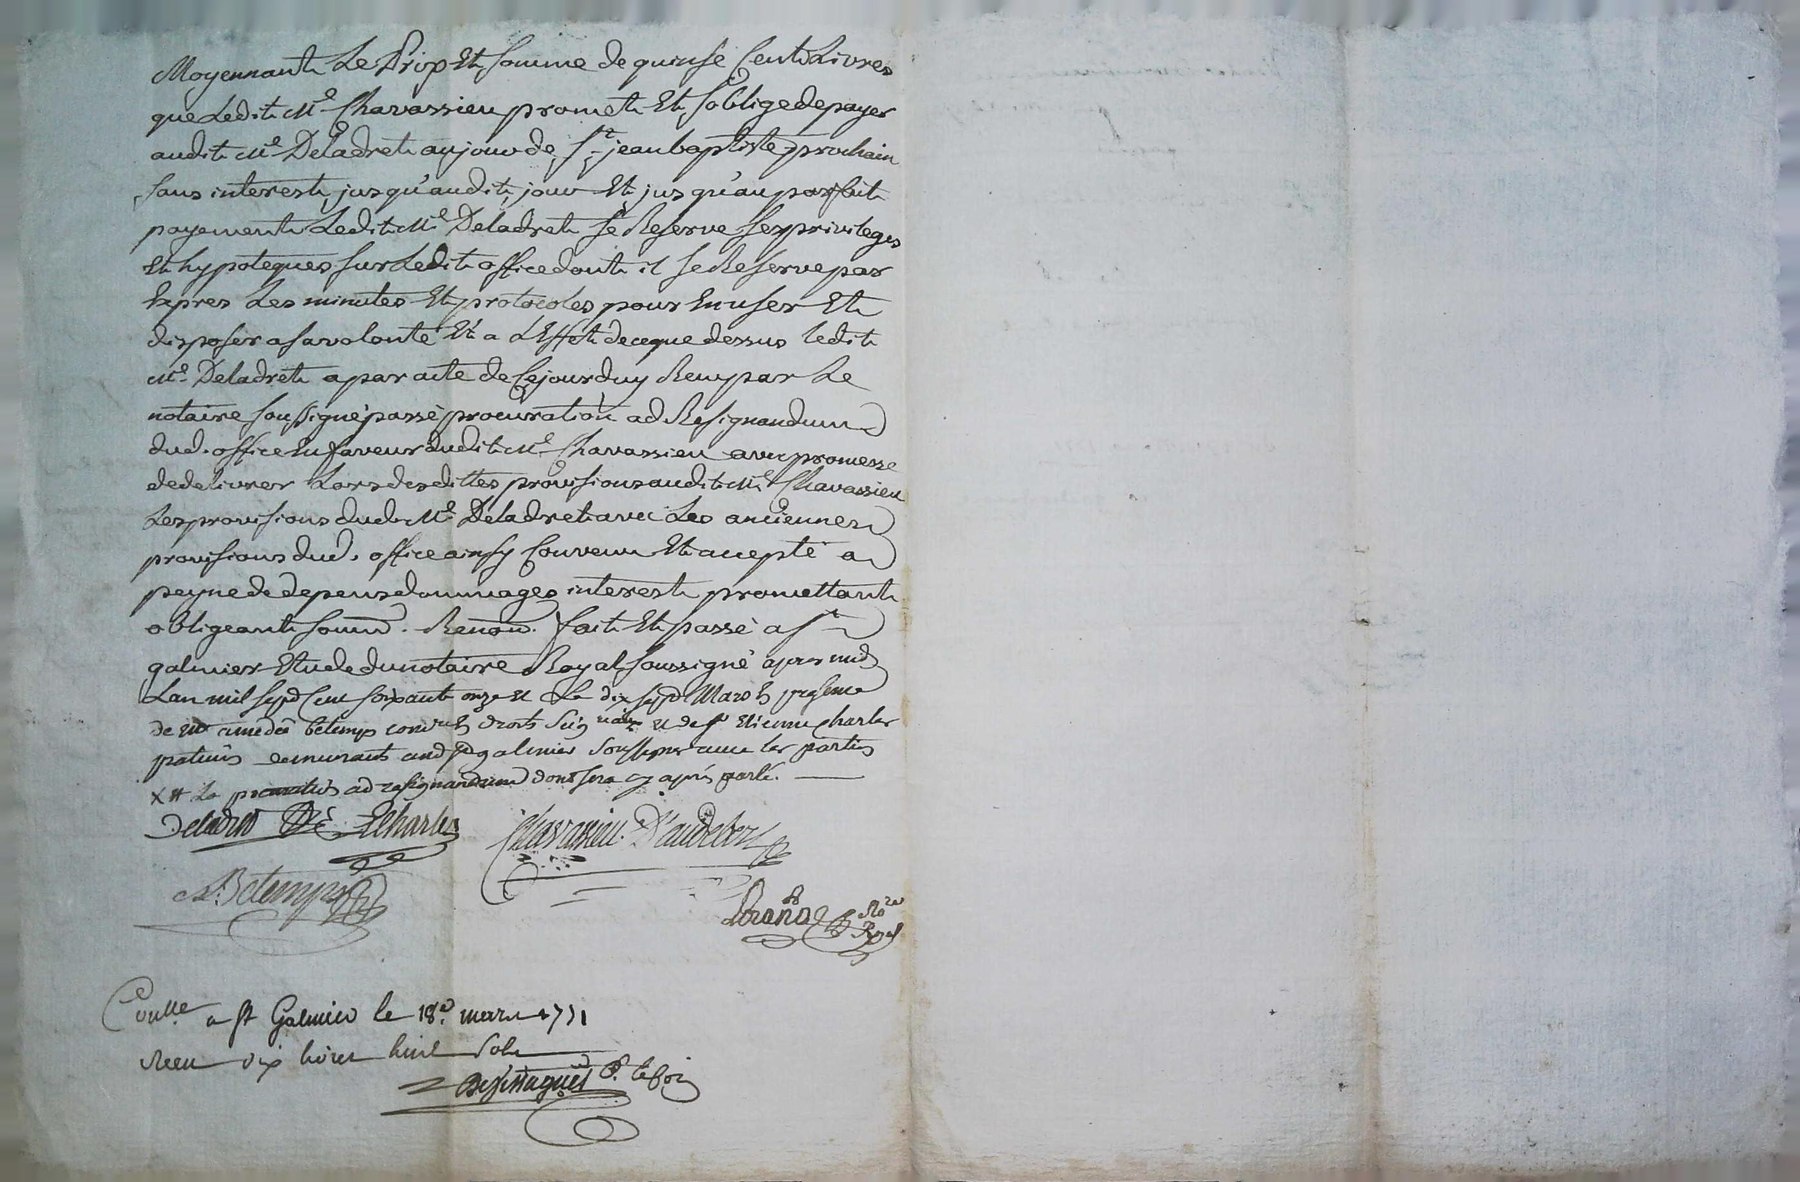 Moyennant Le Prix Et Somme de quinse Cents Livres
que Ledit Me. Chavassieu promet Et Soblige de payer
audit Me. Deladret au jour de St. jean baptiste prochain
Sans interest, jusqu'audit, jour Et jusqu'au parfait
payement Ledit Me. Deladret Se Reserve Ses privileges
Et hypoteques Sur Ledit office dont il Se Reserve par
Expres Les minutes Et protocoles pour En user Et
disposer a sa volonté Et a L'Effet de ce que dessus ledit
Me. Deladret a par acte de Cejourduy Reçu par Le
notaire Soussigné passé procuration ad Resignandum
dud. office En faveur dudit Me. Chavassieu avec promesse
de delivrer Lors desdittes provisions audit Me. Chavassieu
Les provisions dud. Me. Deladret avec Les anciennes
provisions dud. office ainsy Convenu Et accepté a
peyne de depens dommages interest promettant
obligeant Soum. Renon. fait Et passé a St.
galmier Etude du notaire Royal Soussigné apres midy
Lan mil Sept Cent Soixante onze et Le dix Sept Mars En presence
de Me amedée betemps droits et de Sr Etienne charles
patissier demeurants aud St galmier Soussignés avec les parties
X et La procuration ad resignandum dont sera cy après parlé.
Deladret EtCharles Chavassieu D'audebert
A. Betemps
Nore Royal
Conlle a St Galmier le 18e. mars 1771
Recu dix livres huit Sols